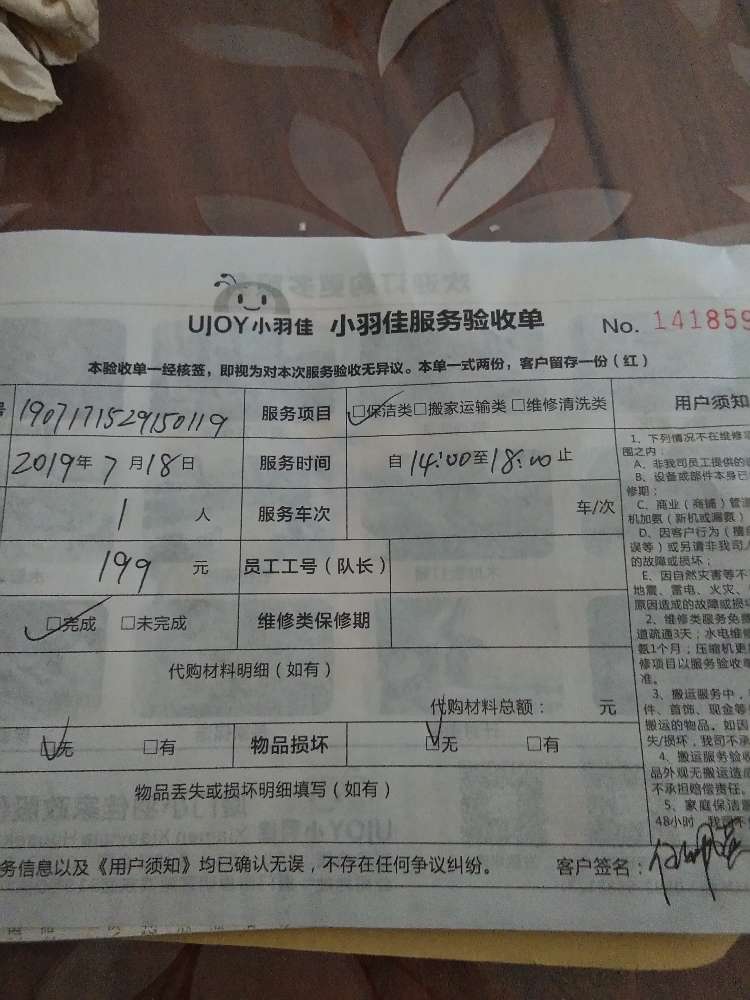 UJOY小羽佳 小羽佳服务验收单 No. 141859
本验收单一经核签，即视为对本次服务验收无异议。本单一式两份，客户留存一份（红）
号 1907171529150119 服务项目 □保洁类□搬家运输类 □维修清洗类 用户须知
2019年7月18日 服务时间 自14:00至18:00止
1 人 服务车次 车/次
199 元 员工工号（队长）
□完成 □未完成 维修类保修期
代购材料明细（如有）
代购材料总额： 元
□无 □有 物品损坏 □无 □有
物品丢失或损坏明细填写（如有）
务信息以及《用户须知》均已确认无误，不存在任何争议纠纷。 客户签名：
1、下列情况不在维修
围之内：
A、非我司员工提供的
B、设备或部件本身已
修期；
C、商业（商铺）管道
机加氨（新机或漏氨）
D、因客户行为（
误等）或另请非我司
的故障或损坏；
E、因自然灾害等不
地震、雷电、火灾、
原因造成的故障或损
2、维修类服务免费
道疏通3天；水电维修
氨1个月；压缩机更
修项目以服务验收单
准。
3、搬运服务中，
件、首饰、现金等
搬运的物品。如因
失/损坏，我司不承
4、搬运服务验收
品外观无搬运造成
不承担赔偿责任。
5、家庭保洁服
48小时，我司不